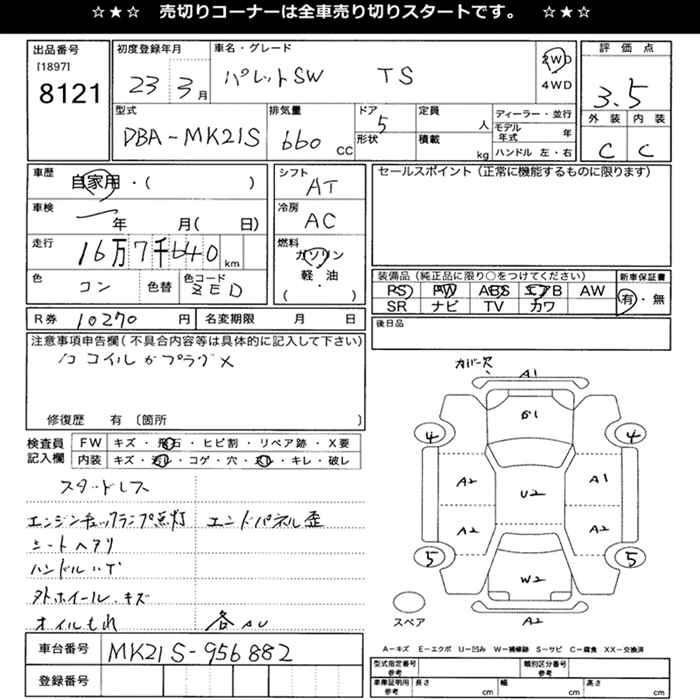 ☆★☆ 売切りコーナーは全車売り切りスタートです。 ☆★☆
出品番号
[1897]
8121
初度登録年月
23年 3月
車名・グレード
パレットSW TS
2WD
4WD
評価点
3.5
外装 内装
C C
型式
DBA-MK21S
排気量
660 CC
ドア
5
形状
定員 人
積載 kg
ディーラー・並行
モデル年式 年
ハンドル 左・右
車歴
自家用・( )
シフト
AT
セールスポイント (正常に機能するものに限ります)
車検
年 月( 日)
冷房
AC
走行
16万7千640km
燃料
ガソリン
軽・油
( ・ )
色
コン
色替
色コード
ZED
装備品 (純正品に限り○をつけてください)
PS PW ABS エアB AW
SR ナビ TV カワ
新車保証書
有・無
R券 10270円
名変期限 月 日
後日品
注意事項申告欄 (不具合内容等は具体的に記入して下さい)
コイルかプラグ×
修復歴 有 〔箇所 〕
検査員記入欄
FW キズ・飛石・ヒビ割・リペア跡・X要
内装 キズ・汚レ・コゲ・穴・スレ・キレ・破レ
スタッドレス
エンジンチェックランプ点灯 エンドパネル歪
シートヘタリ
ハンドルハゲ
外ホイール、キズ
オイルもれ 各AU
車台番号 MK21S-956882
登録番号
カバー欠
A1
B1
4 4
A2 U2 A1
A2 A2
5 5
W2
A2
スペア
A-キズ E-エクボ U-凹み W-補修跡 S-サビ C-腐食 XX-交換済
型式指定番号 参考
類別区分番号 参考
車庫証明用 参考
長さ cm
幅 cm
高さ cm